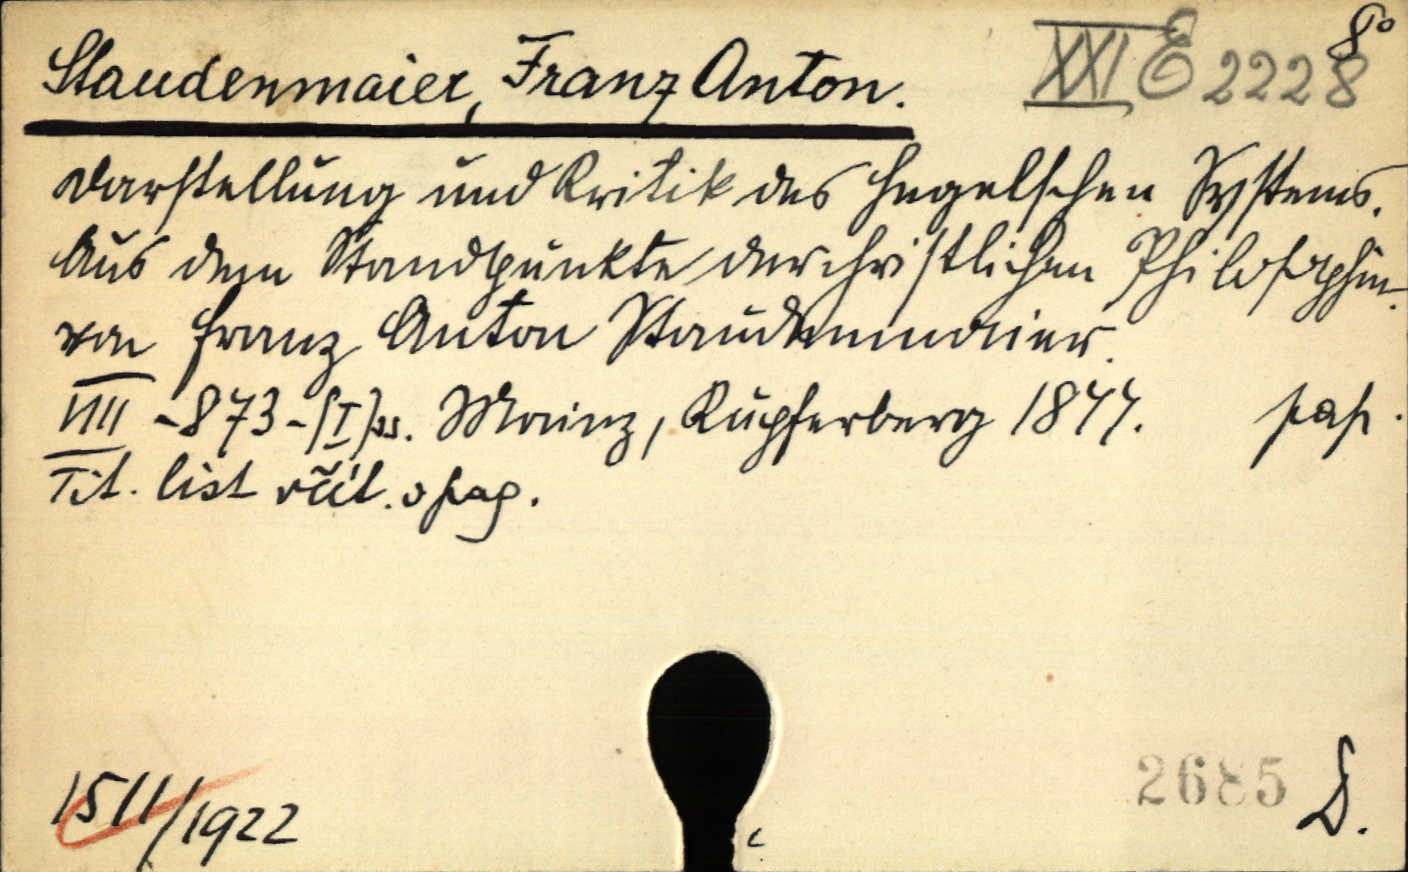 Staudenmaier, Franz Anton.
XXI E 2228
8°
Darstellung und Kritik des Hegelschen Systems.
Aus dem Standpunkte der christlichen Philosophie.
von Franz Anton Staudenmaier.
VIII - 873 - [I] ss. Mainz, Kupferberg 1844. pap.
Tit. list včít. v pag.
1511/1922
2685
D.